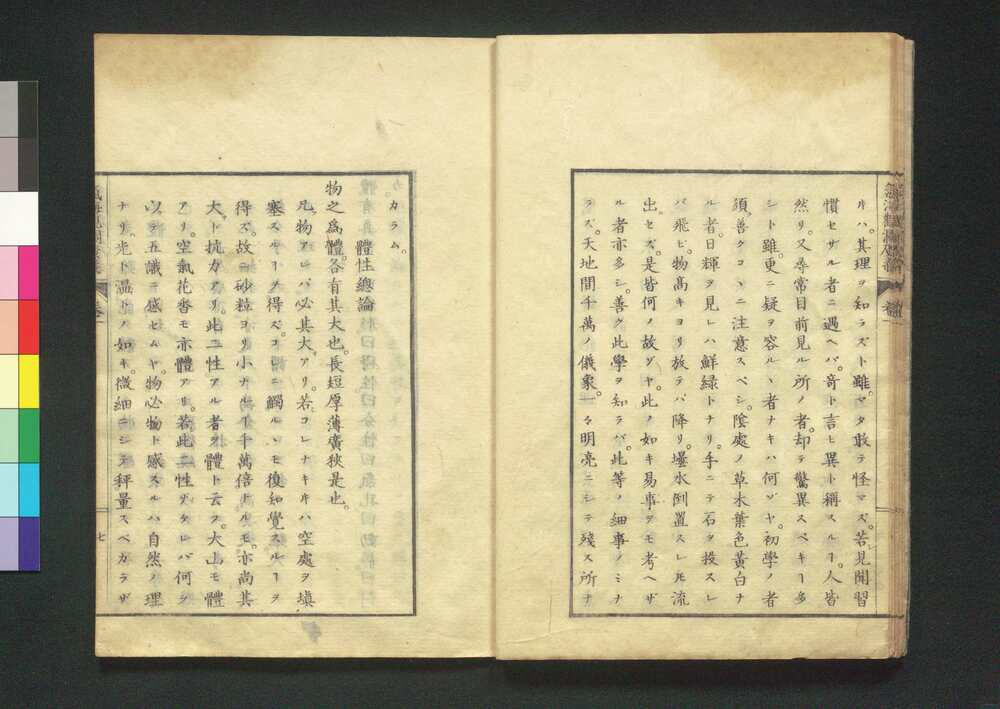 ヰハ。其理ヲ知ラズト雖。マタ敢テ怪マズ。若見聞習
慣セザル者ニ遇ヘバ。奇ト言ヒ異ト稱スルヿ。人皆
然リ。又尋常目前見ル所ノ者。却テ驚異スベキヿ多
シト雖。更ニ疑ヲ容ルヽ者ナキハ何ゾヤ。初學ノ者
須。善クコヽニ注意スベシ。陰處ノ草木葉色黃白ナ
ル者。日輝ヲ見レハ鮮緑トナリ。手ニテ石ヲ投スレ
バ飛ビ。物高キヨリ放テバ降リ。壜水倒置スレ𪜈流
出セズ。是皆何ノ故ゾヤ。此ノ如キ易事ヲモ考ヘザ
ル者亦多シ。善ク此學ヲ知ラバ。此等ノ細事ノミナ
ラズ。天地間千萬ノ儀象。一々明亮ニシテ殘ス所ナ
カラム。
體性總論
物之爲體。各有其大也。長短厚薄廣狹是也。
凡物アレバ必其大アリ。若コレナキヰハ空處ヲ塡
塞スルヿヲ得ズ。コレニ觸ルヽモ復知覺スルヿヲ
得ズ。故ニ砂粒ヨリ小ナルヿ千萬倍ナルモ。亦尚其
大ト抗力アリ。此二性アル者ヲ體ト云フ。大山モ體
アリ。空氣花香モ亦體アリ。若此二性ヲクレバ何ヲ
以テ五識ニ感セムヤ。物必物ト感スルハ自然ノ理
ナリ。光ト溫トノ如キ。微細ニシテ秤量スベカラザ
七